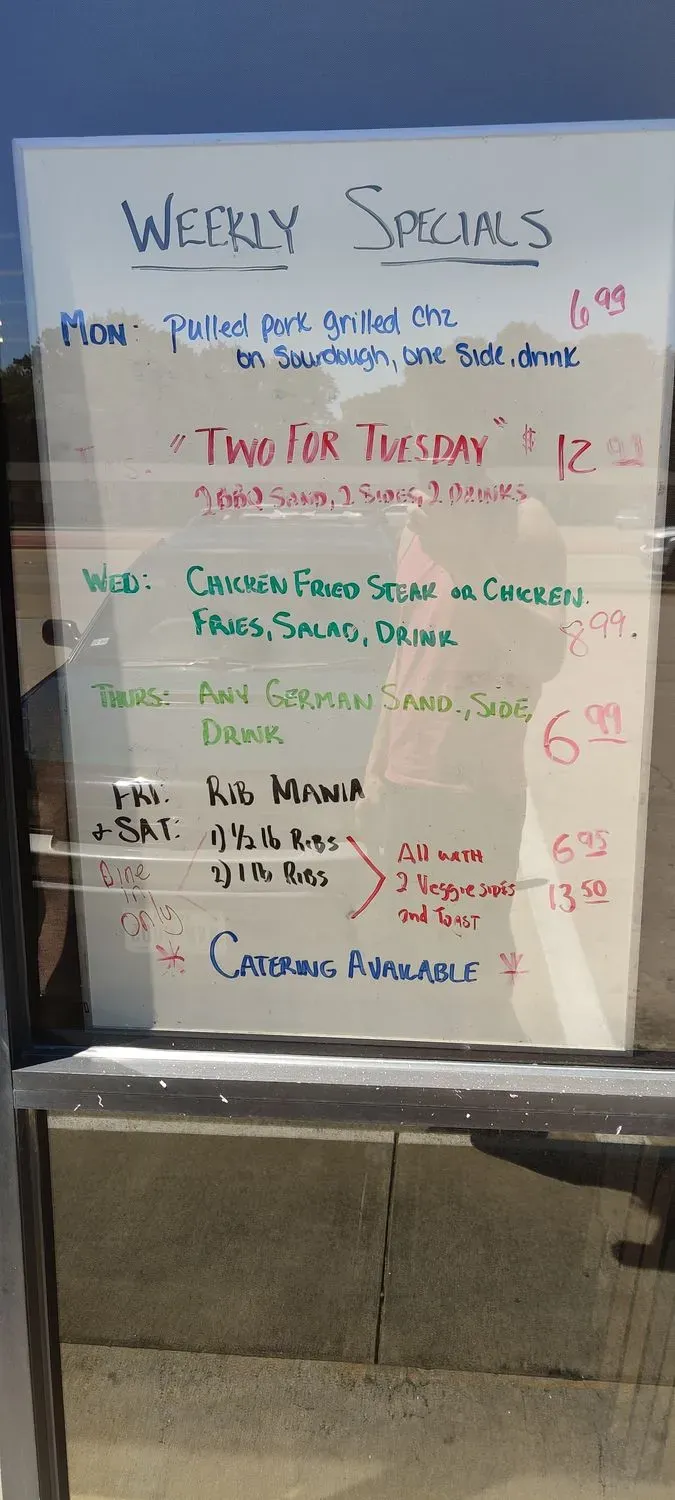 WEEKLY SPECIALS
MON: Pulled pork grilled chz 6 99
on Sourdough, one side, drink
"TWO FOR TUESDAY" $12
2 BBQ SAND, 2 SIDES, 2 DRINKS
WED: CHICKEN FRIED STEAK OR CHICKEN.
FRIES, SALAD, DRINK 8 99.
THURS: ANY GERMAN SAND., SIDE,
DRINK 6 99
FRI: RIB MANIA
+ SAT: 1) 1/2 lb RIBS 6 95
2) 1 lb RIBS 13 50
All WITH
2 Veggie sides
and TOAST
Dine
in
only
* CATERING AVAILABLE *